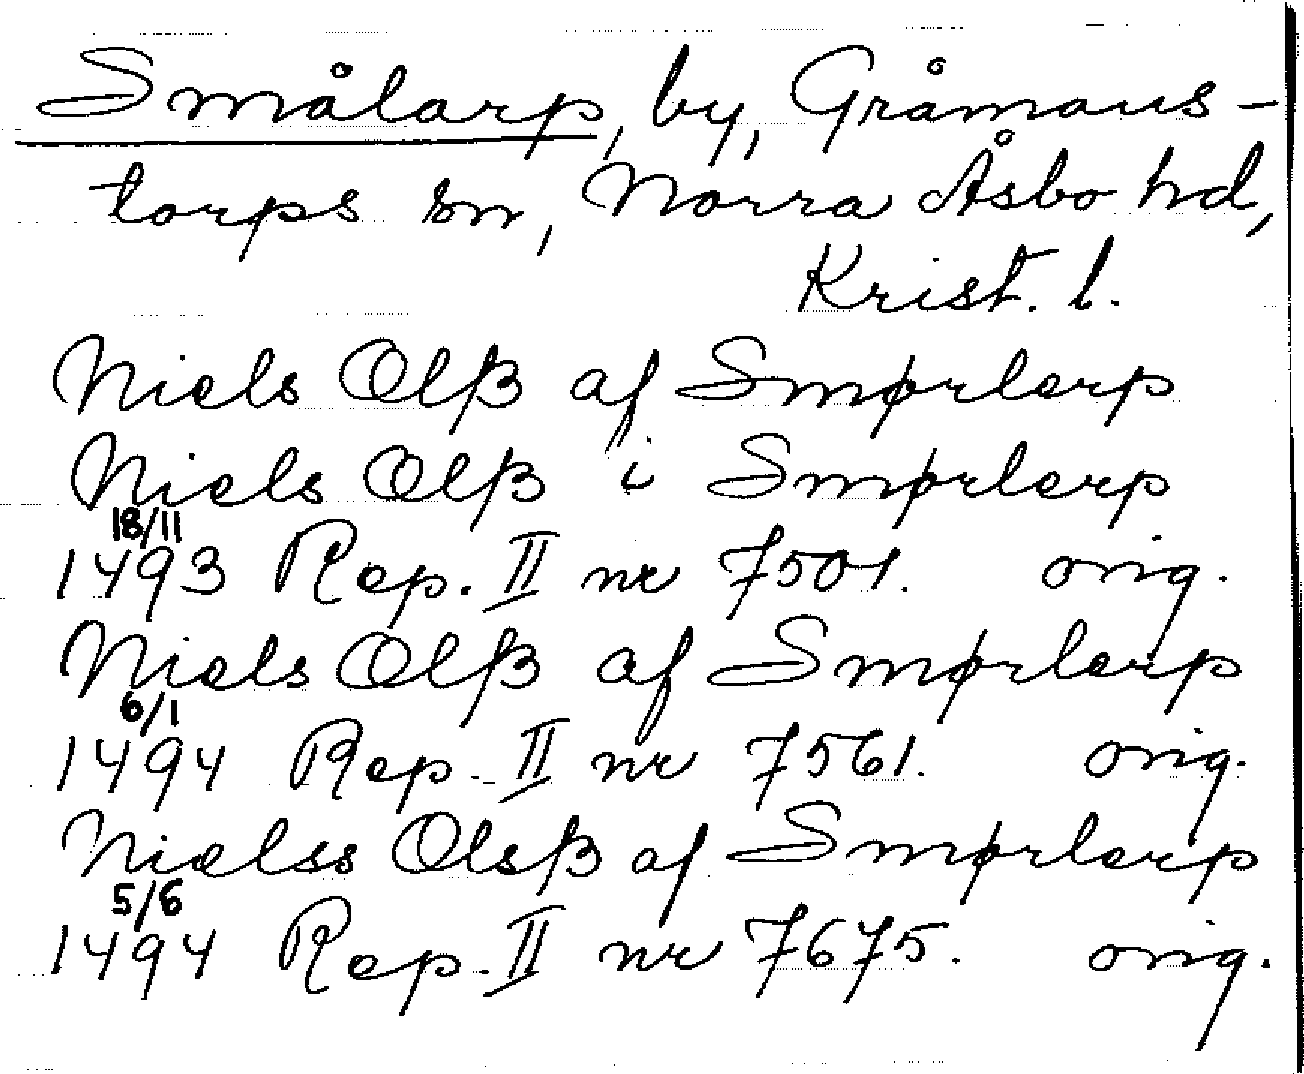 Smålarp, by, Gråmans-
torps sn, Norra Åsbo hd,
Krist. l.
Niels Olß af Smørlerp
Niels Olß i Smørlerp
18/11
1493 Rep. II nr 7501. orig.
Niels Olß af Smørlerp
6/1
1494 Rep. II nr 7561. orig.
Nielss Olsß af Smørlerp
5/6
1494 Rep. II nr 7675. orig.